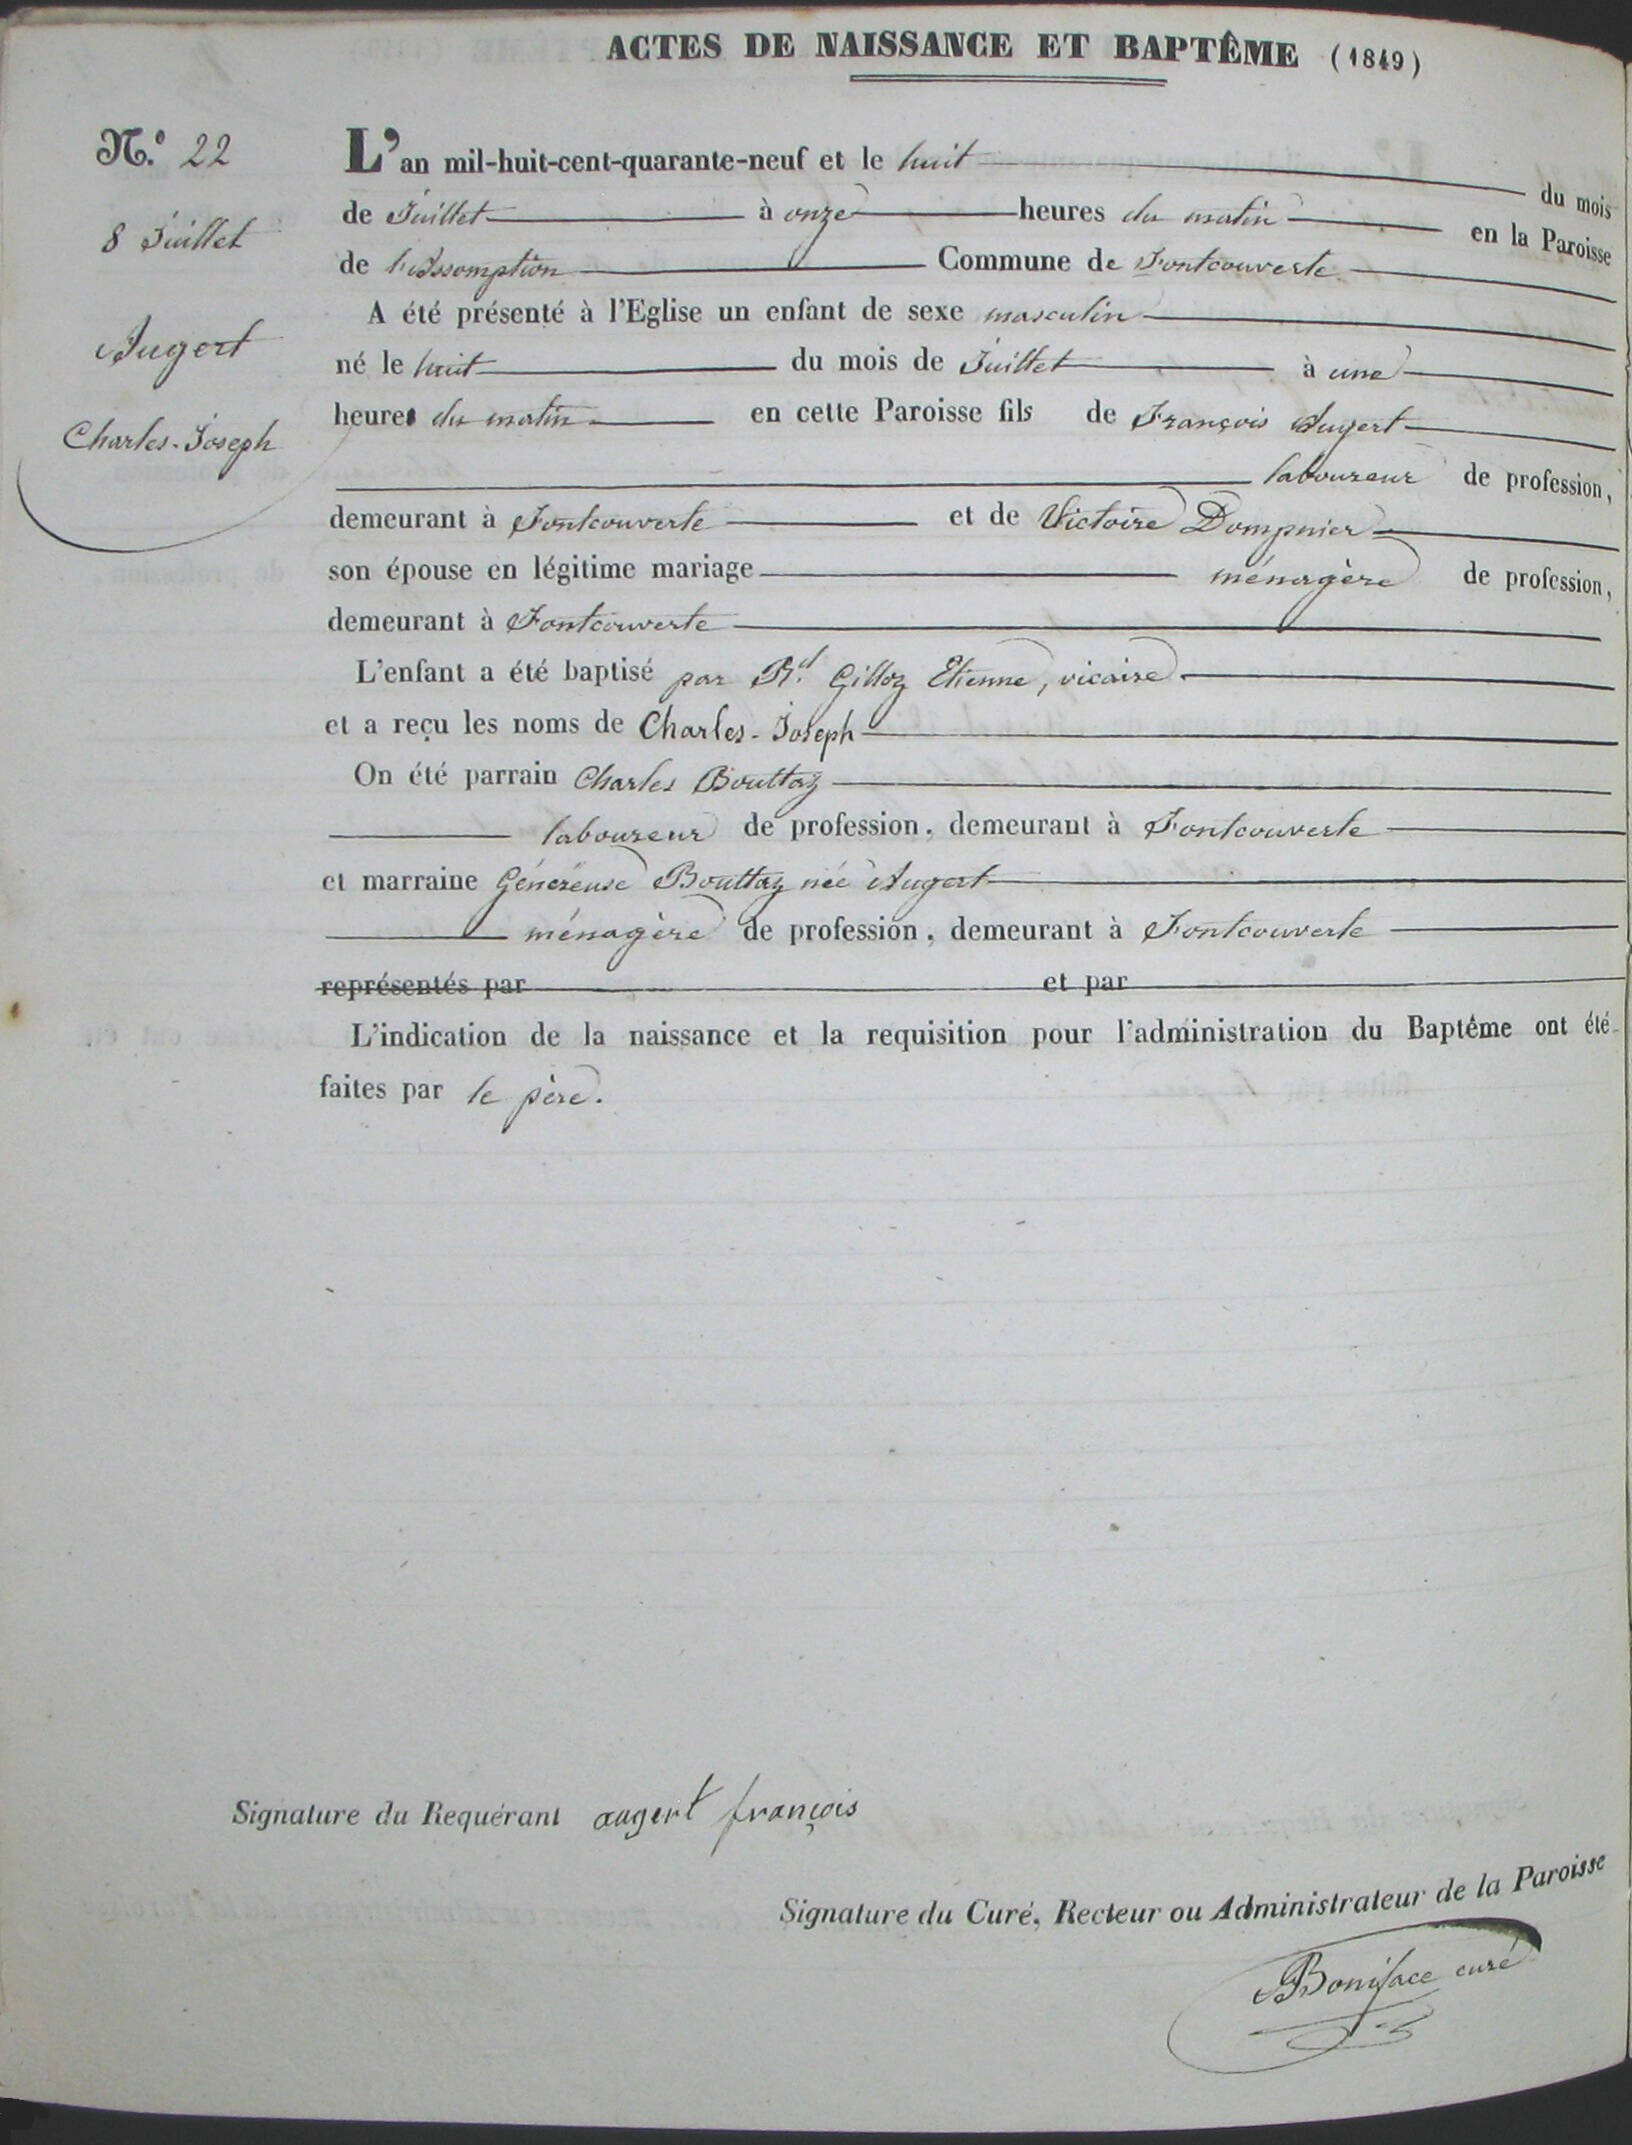 ACTES DE NAISSANCE ET BAPTÊME (1849)
N.º 22
8 Juillet
Augert
Charles-Joseph
L'an mil-huit-cent-quarante-neuf et le huit du mois
de Juillet à onze heures du matin en la Paroisse
de l'Assomption Commune de Fontcouverte
A été présenté à l'Eglise un enfant de sexe masculin
né le huit du mois de Juillet à une
heure du matin en cette Paroisse fils de François Augert
laboureur de profession,
demeurant à Fontcouverte et de Victoire Dompnier
son épouse en légitime mariage ménagère de profession,
demeurant à Fontcouverte
L'enfant a été baptisé par Rd. Gilloz Etienne, vicaire
et a reçu les noms de Charles-Joseph
On été parrain Charles Bouttaz
laboureur de profession, demeurant à Fontcouverte
et marraine Généreuse Bouttaz née Augert
ménagère de profession, demeurant à Fontcouverte
représentés par et par
L'indication de la naissance et la requisition pour l'administration du Baptême ont été
faites par le père.
Signature du Requérant augert françois
Signature du Curé, Recteur ou Administrateur de la Paroisse
Boniface curé